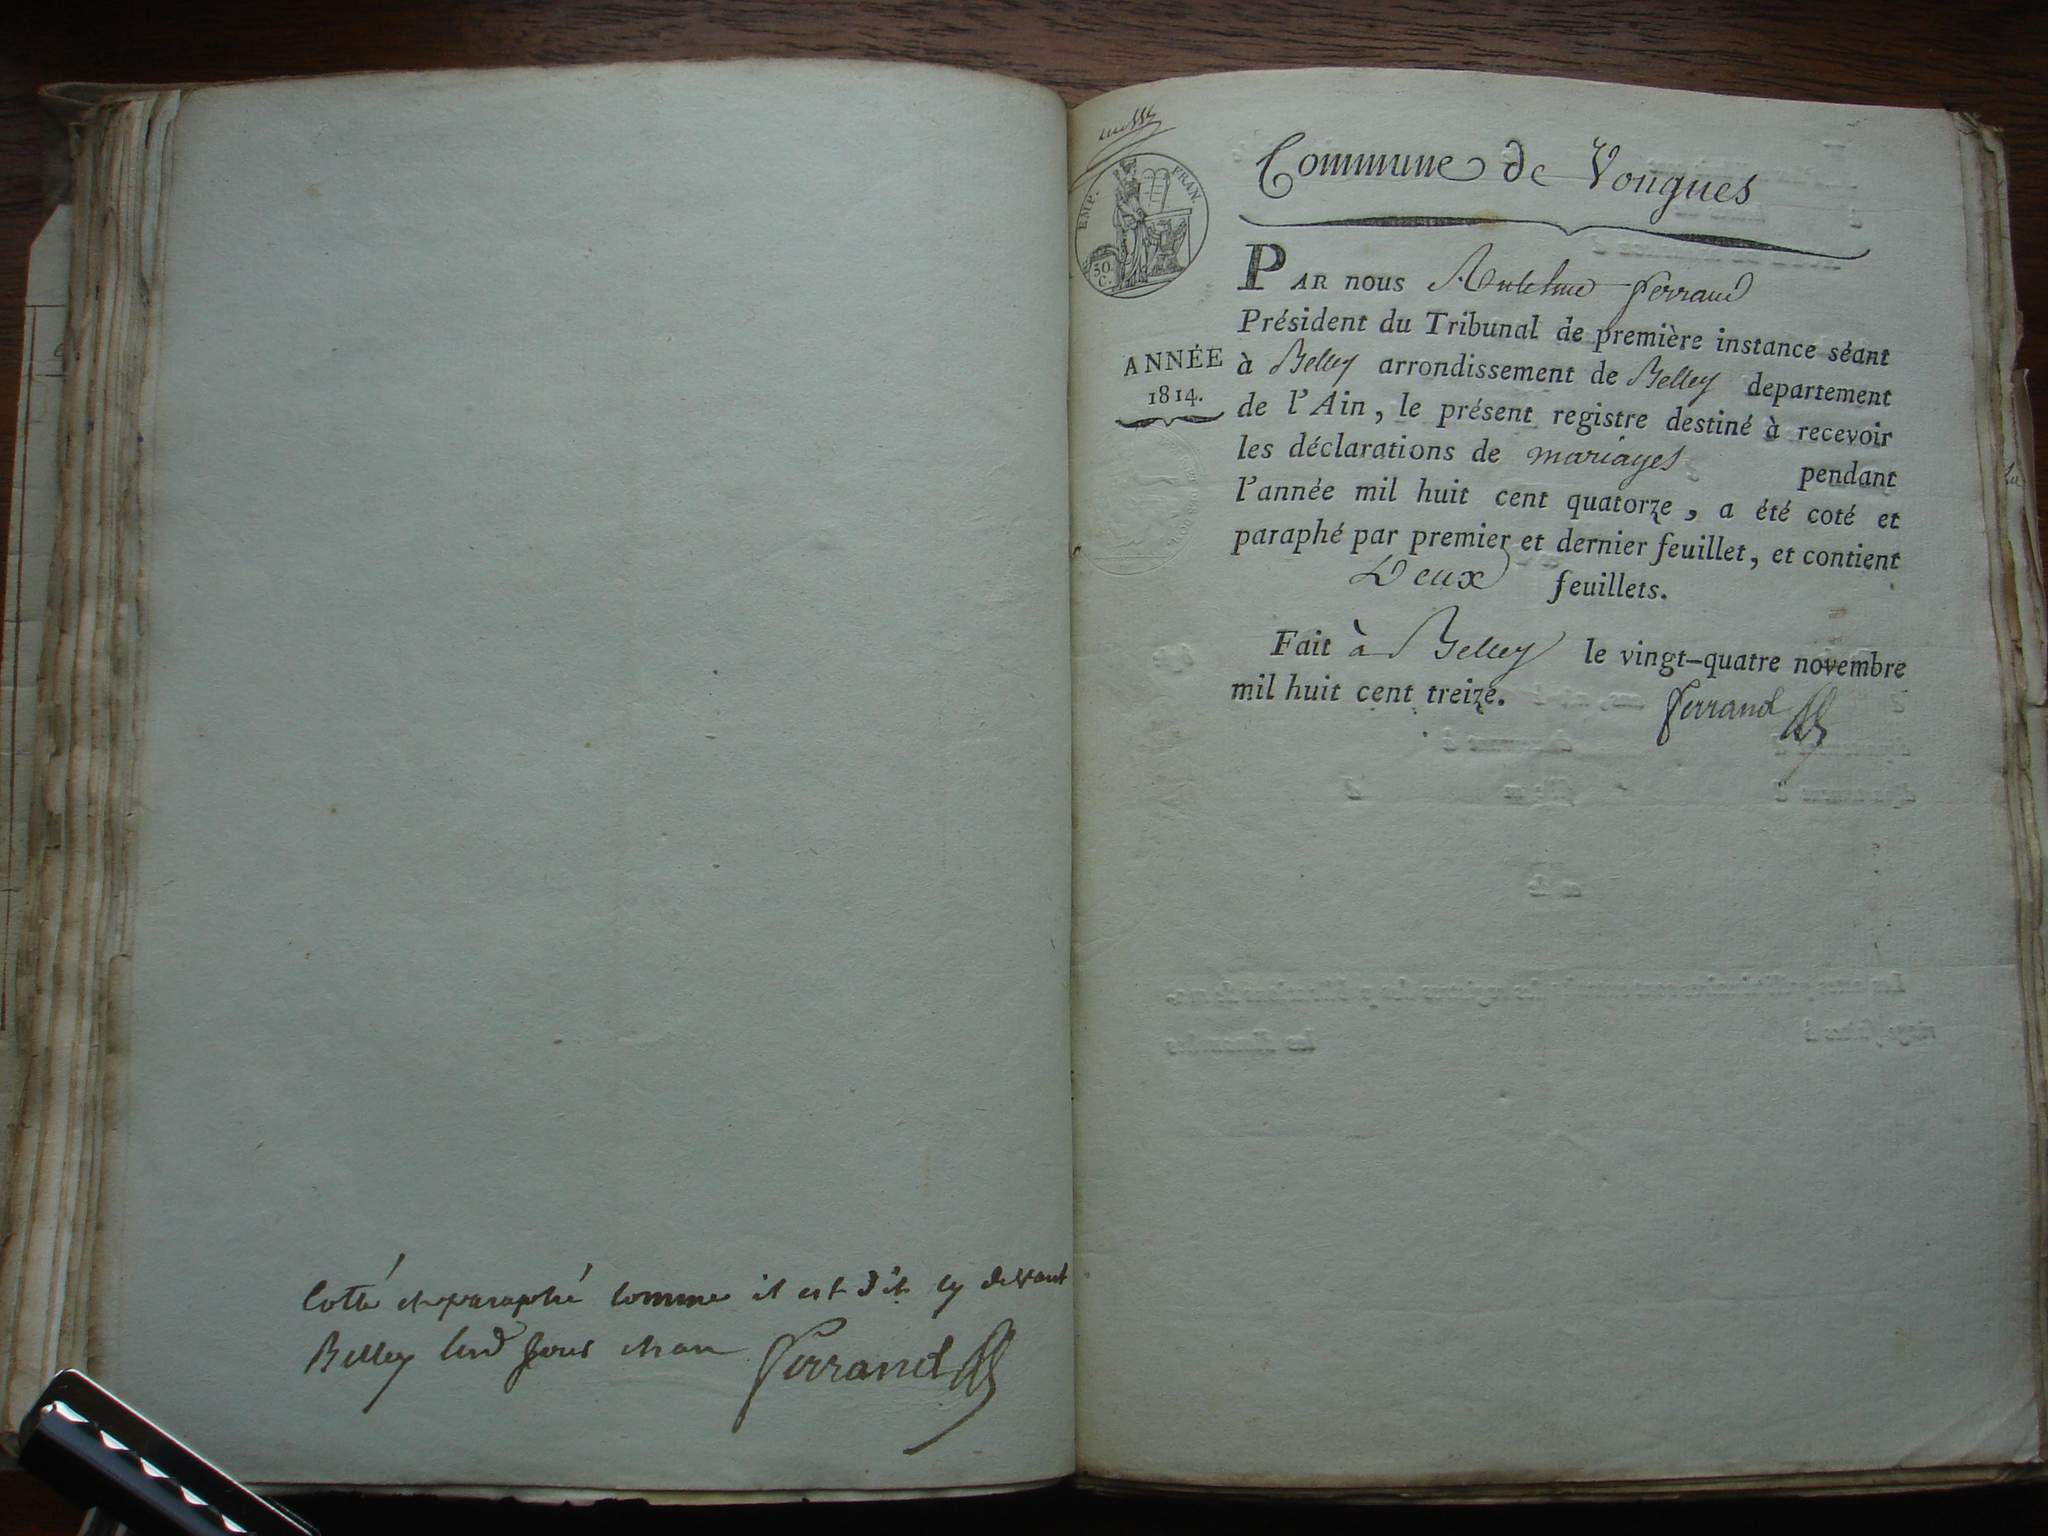 Cotté et paraphé comme il est dit cy devant
Belley led jour et an Ferrand
EMP. FRAN.
50.
C.
Commune de Vongues
PAR nous Anthelme Ferrand
Président du Tribunal de première instance séant
ANNÉE
1814.
à Belley arrondissement de Belley departement
de l'Ain, le présent registre destiné à recevoir
les déclarations de mariages pendant
l'année mil huit cent quatorze, a été coté et
paraphé par premier et dernier feuillet, et contient
Deux feuillets.
Fait à Belley le vingt-quatre novembre
mil huit cent treize. Ferrand